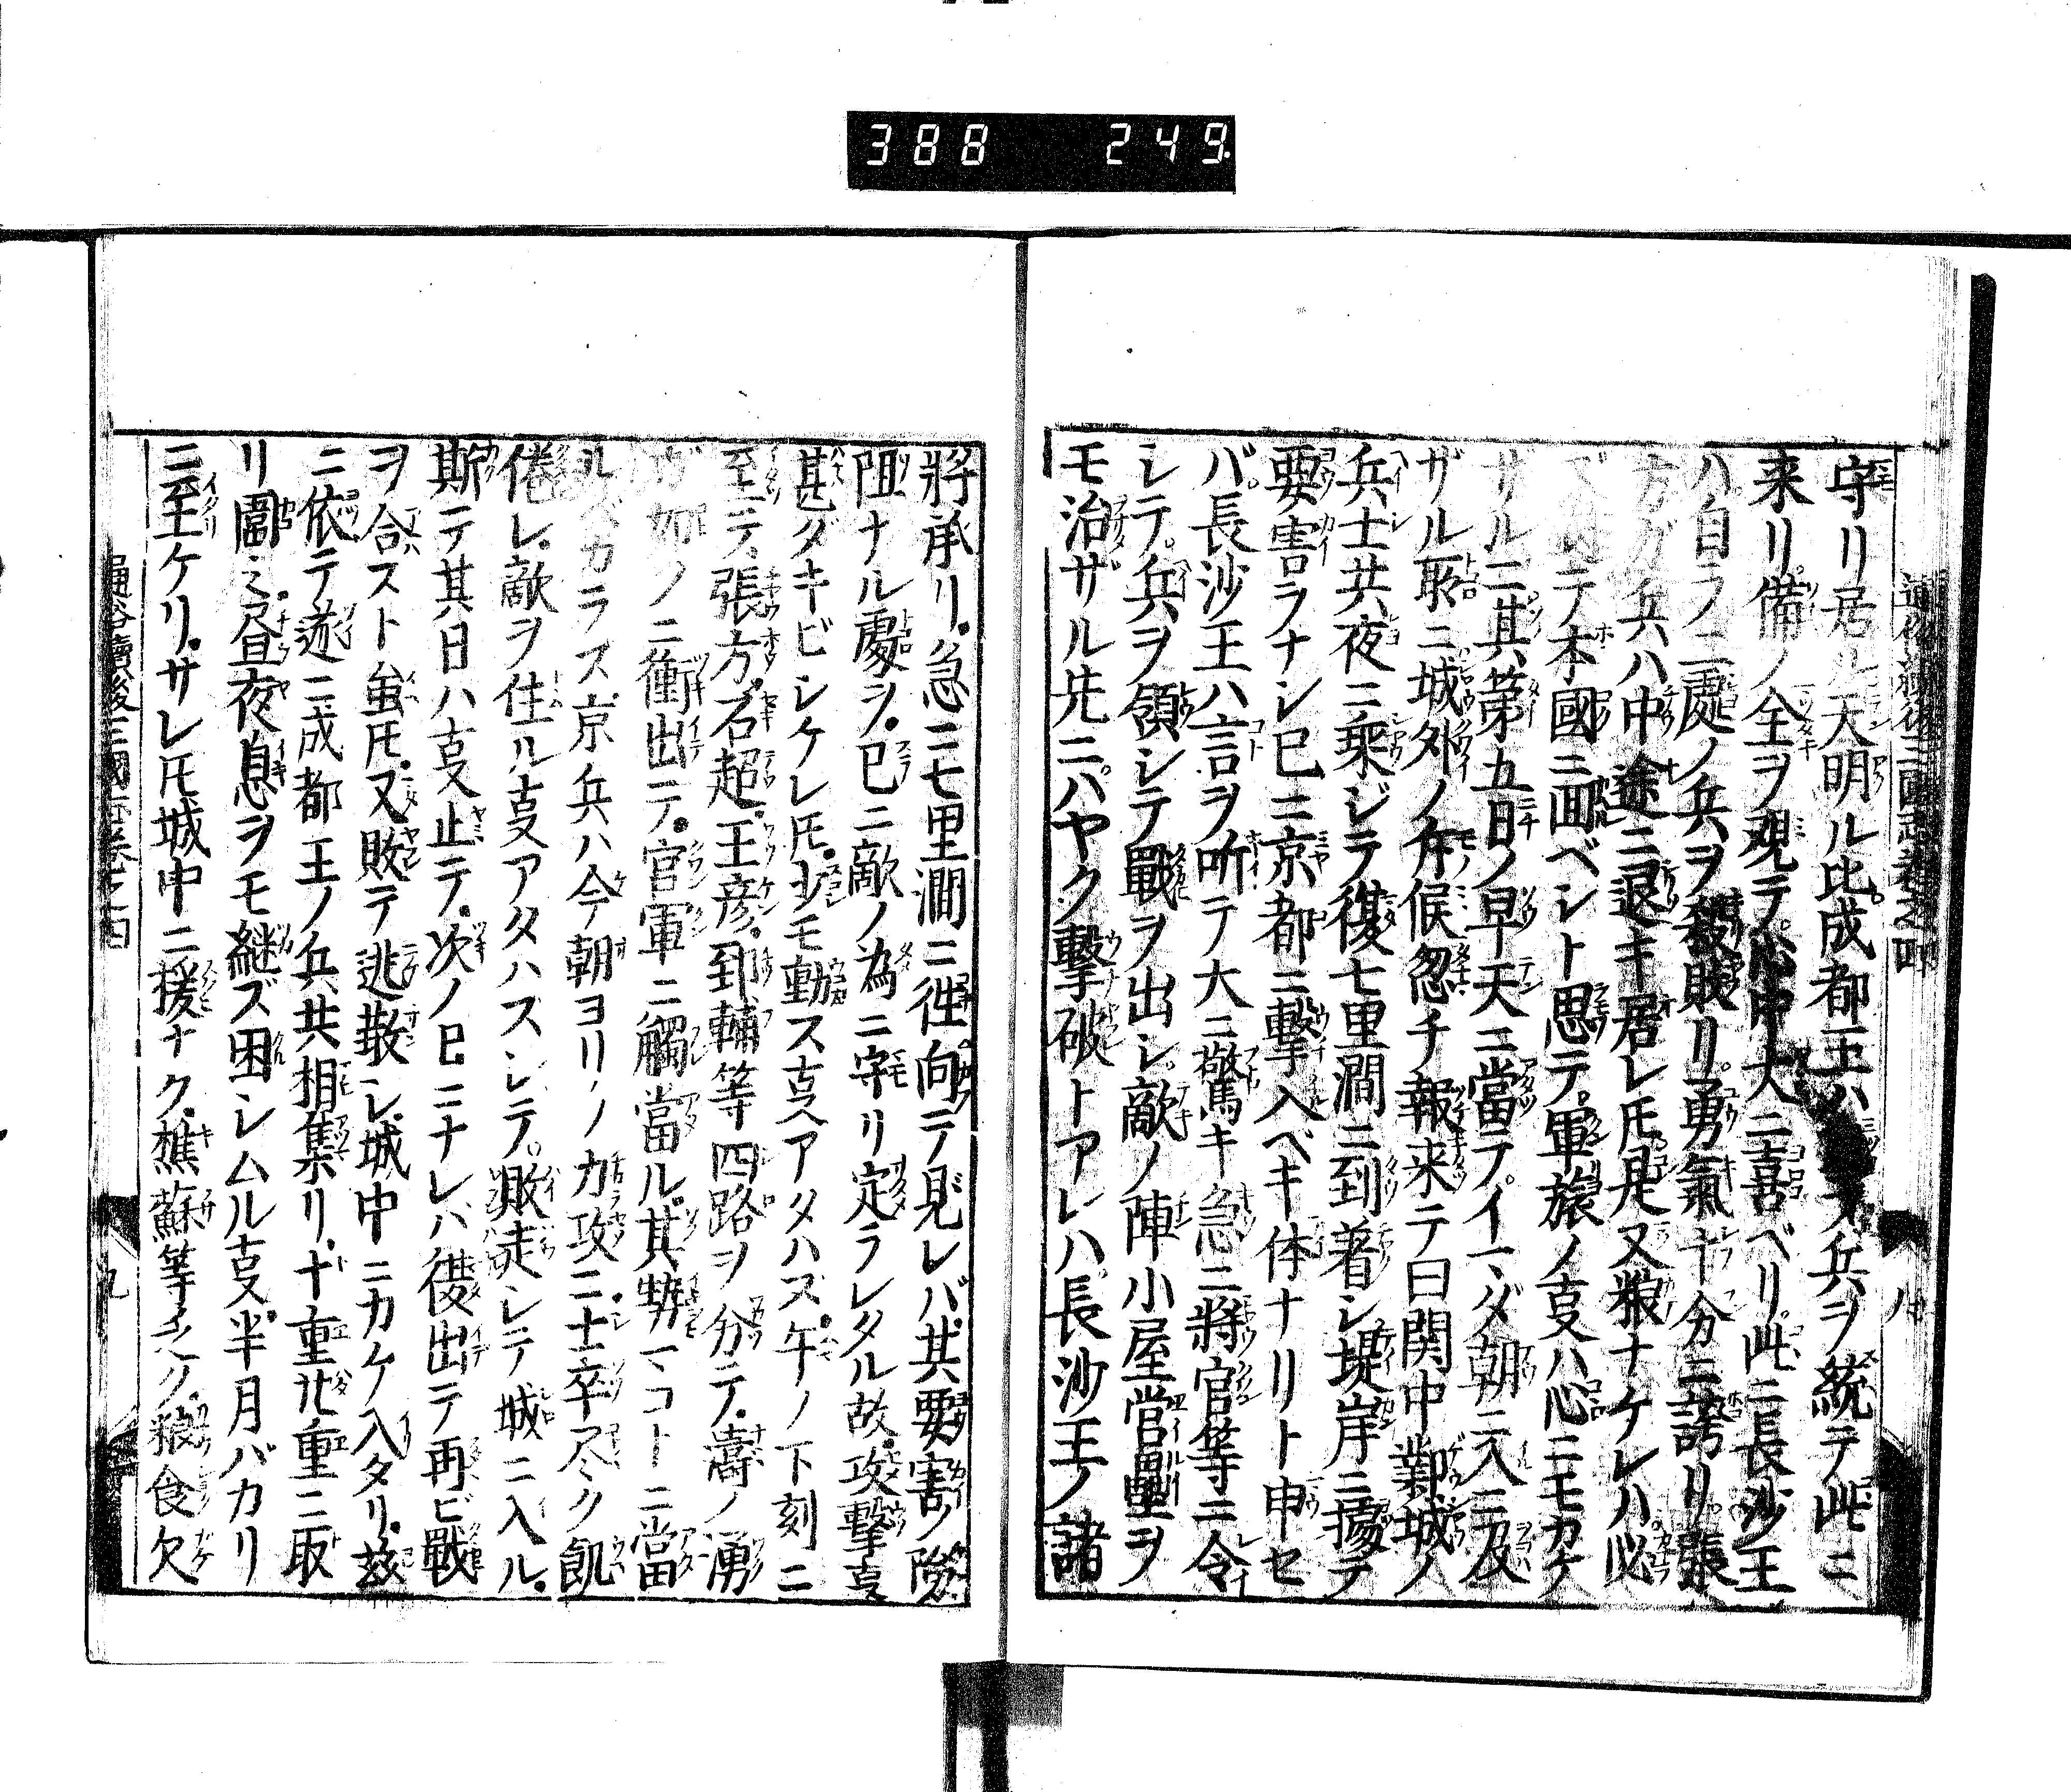 388 249
通俗續後三國志卷之四 八
守リ居ル天明ル比成都王ハ兵ヲ統テ此ニ
来リ備ノ全ヲ観テ心中大ニ喜ベリ此ニ長沙王
ハ自ラ二處ノ兵ヲ殺敗リ勇氣十分ニ誇リ張
方ガ兵ハ中途ニ退キ居レ𪜈是又粮ナケレハ必
ズテ本國ニ回ベシト思テ軍旅ノ叓ハ心ニモカケ
ザルニ其第五日ノ早天ニ當テイマダ朝ニ入ニ及
ザル聆ニ城外ノ斥候忽チ報来テ曰関中鄴城ノ
兵士共夜ニ乘ジテ復七里澗ニ到着シ堤岸ニ據テ
要害ヲナシ已ニ京都ニ擊入ベキ体ナリト申セ
バ長沙王ハ言ヲ听テ大ニ驚キ急ニ將官等ニ令
シテ兵ヲ領シテ戰ヲ出シ敵ノ陣小屋営壘ヲ
モ治ザル先ニハヤク擊破トアレハ長沙王ノ諸
將承リ急ニ七里澗ニ徃向テ見レバ其要害ノ險
阻ナル處ヲ已ニ敵ノ為ニ守リ定ラレタル故攻擊叓
甚ダキビシケレ𪜈少モ動ス叓アタハス午ノ下刻ニ
至テ張方石超王彦郅輔等四路ヲ分テ濤ノ湧
ガ如ノニ衝出テ官軍ニ觸當ル其勢マコトニ當
ルベカラス京兵ハ今朝ヨリノ力攻ニ士卒尽ク飢
倦レ敵ヲ住ル叓アタハスシテ敗走シテ城ニ入ル
斯テ其日ハ叓止テ次ノ日ニナレハ復出テ再ビ戰
ヲ合スト虽𪜈又敗テ逃散シ城中ニカケ入タリ茲
ニ依テ遂ニ成都王ノ兵共相集リ十重廿重ニ取
リ圍ミ昼夜息ヲモ継ズ困シムル叓半月バカリ
ニ至ケリサレ𪜈城中ニ援ナク樵蘇等乏ク粮食欠
通俗續後三國志卷之四 九